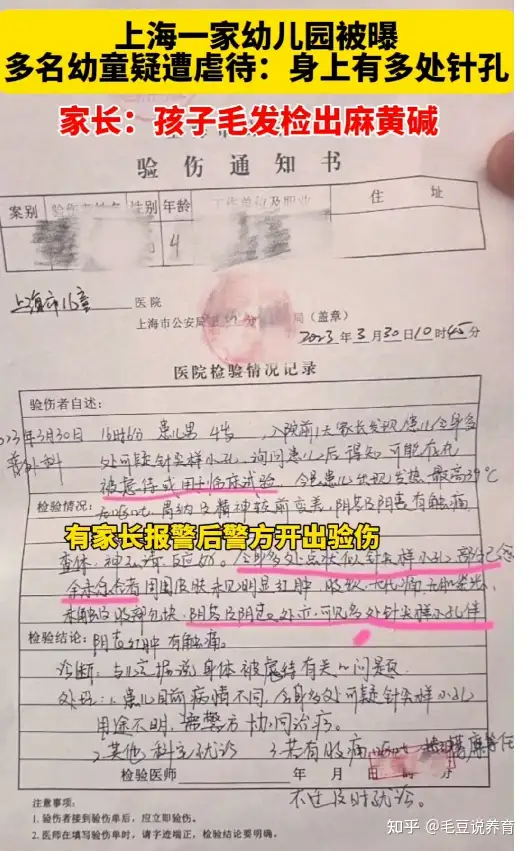 上海一家幼儿园被曝
多名幼童疑遭虐待：身上有多处针孔
家长：孩子毛发检出麻黄碱
验伤通知书
案别 验伤者姓名 性别 年龄 工作单位及职业 住 址
4
上海市儿童 医院
上海市公安局 分 局（盖章）
2023年3月30日10时45分
医院检验情况记录
验伤者自述：
2023年3月30日 16时6分 患儿男 4岁，入院前1天家长发现患儿全身多
普外科 处可疑针尖样小孔，询问患儿后得知可能在校
被虐待或用于临床试验。今患儿出现发热最高39℃
检验情况： 精神较前变差，阴茎及阴囊有触痛
有家长报警后警方开出验伤
查体：神志清，反应好。全身多处点状似针尖样小孔，部分已愈
合 周围皮肤未见明显红肿，
未触及 包块，阴茎及阴囊处亦可见多处针尖样小孔伴
检验结论： 阴茎红肿有触痛。
诊断：与家属诉说身体被虐待有关的问题
处理：1.患儿目前病情不同，全身多处可疑针尖样小孔
用途不明，需警方协同治疗。
2.其他科室就诊 3.若有腹痛
检验医师 年 月 日
不适及时就诊。
注意事项：
1. 验伤者接到验伤单后，应立即验伤。
2. 医师在填写验伤单时，请字迹端正，检验结论要明确。
知乎 @毛豆说养育